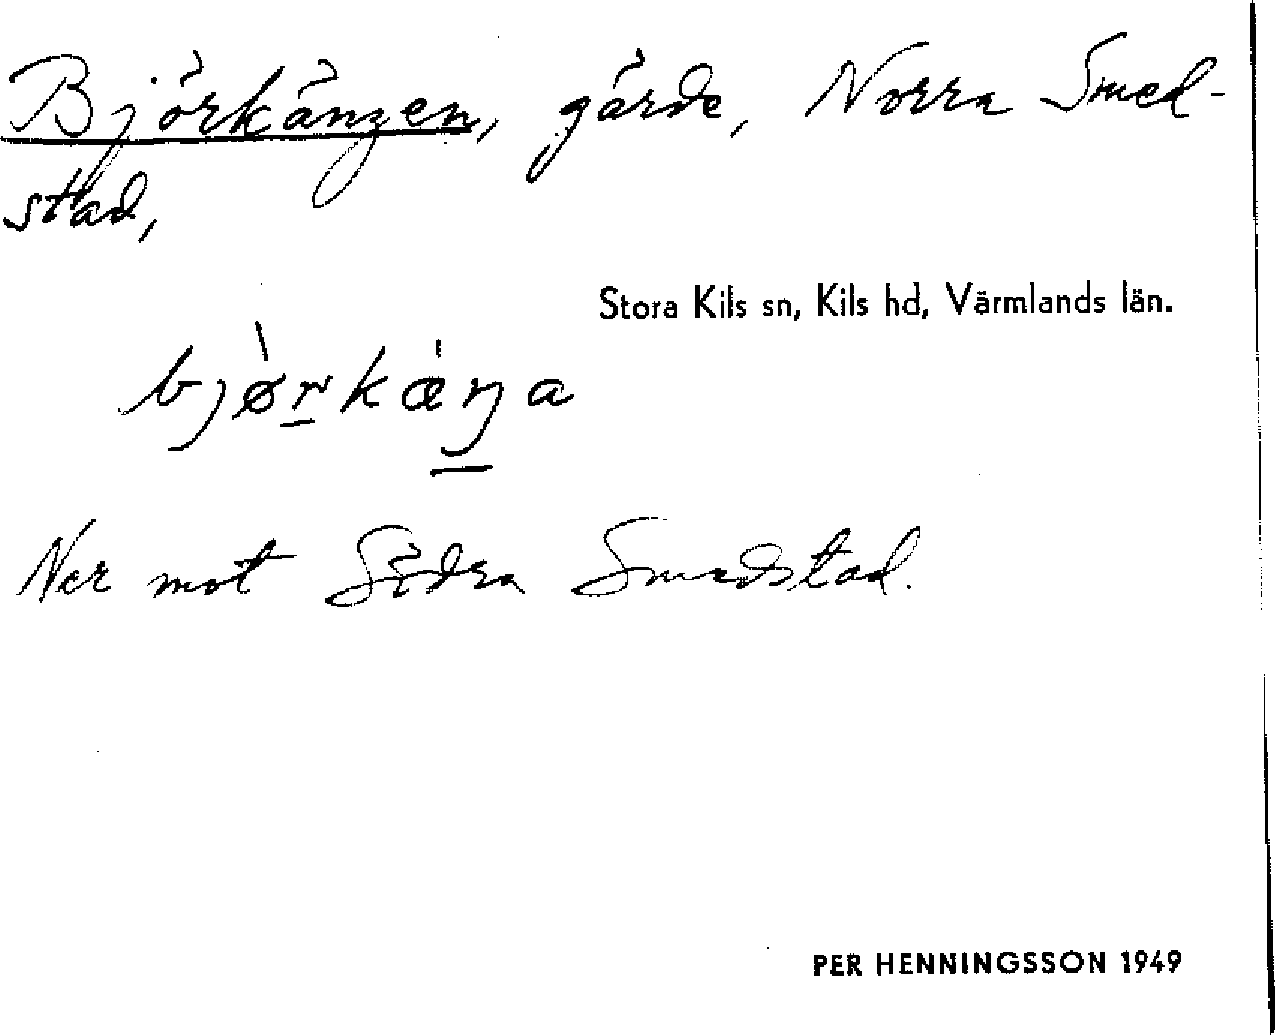 Björkängen, gärde, Norra Smed-
stad,
Stora Kils sn, Kils hd, Värmlands län.
bjø̀r̲kæ̍ŋ̲a
Ner mot Södra Smedstad.
PER HENNINGSSON 1949